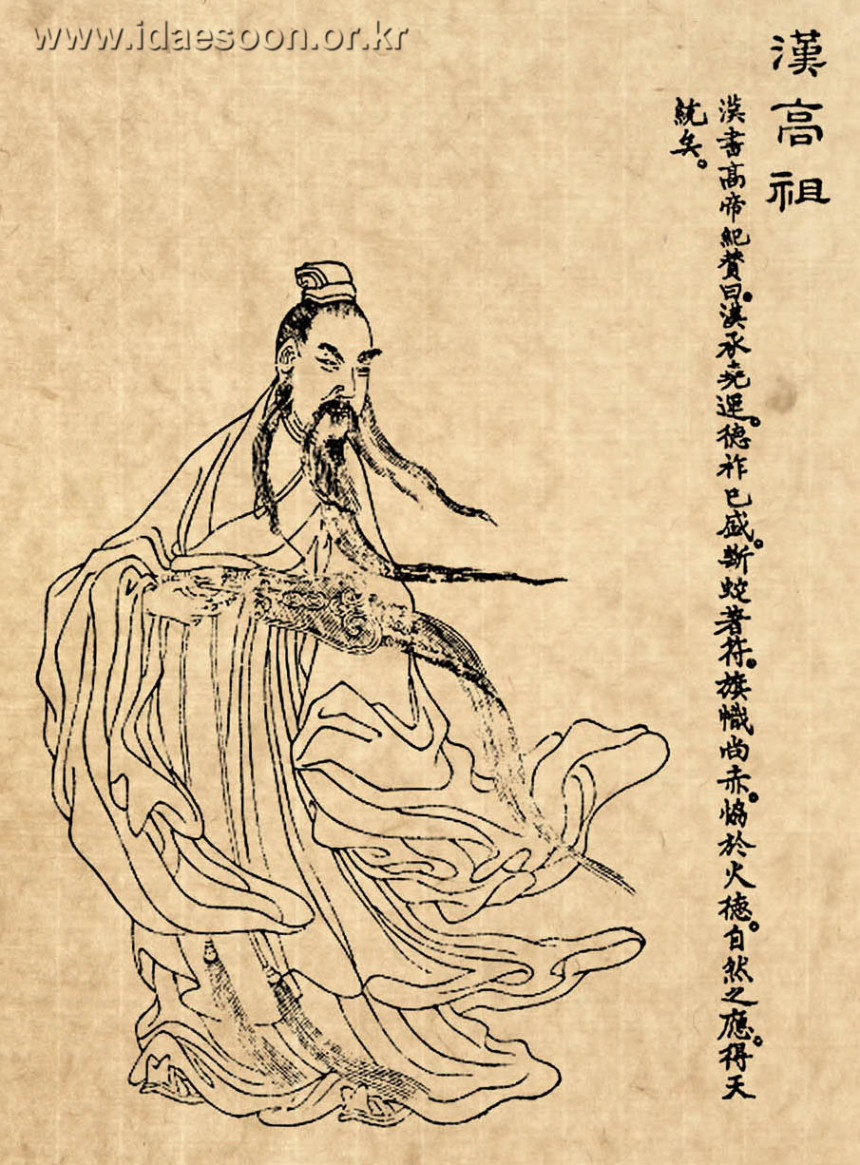 www.idaesoon.or.kr
漢高祖
漢書高帝紀贊曰。漢承堯運。德祚已盛。斷蛇著符。旗幟尚赤。協於火德。自然之應。得天
統矣。